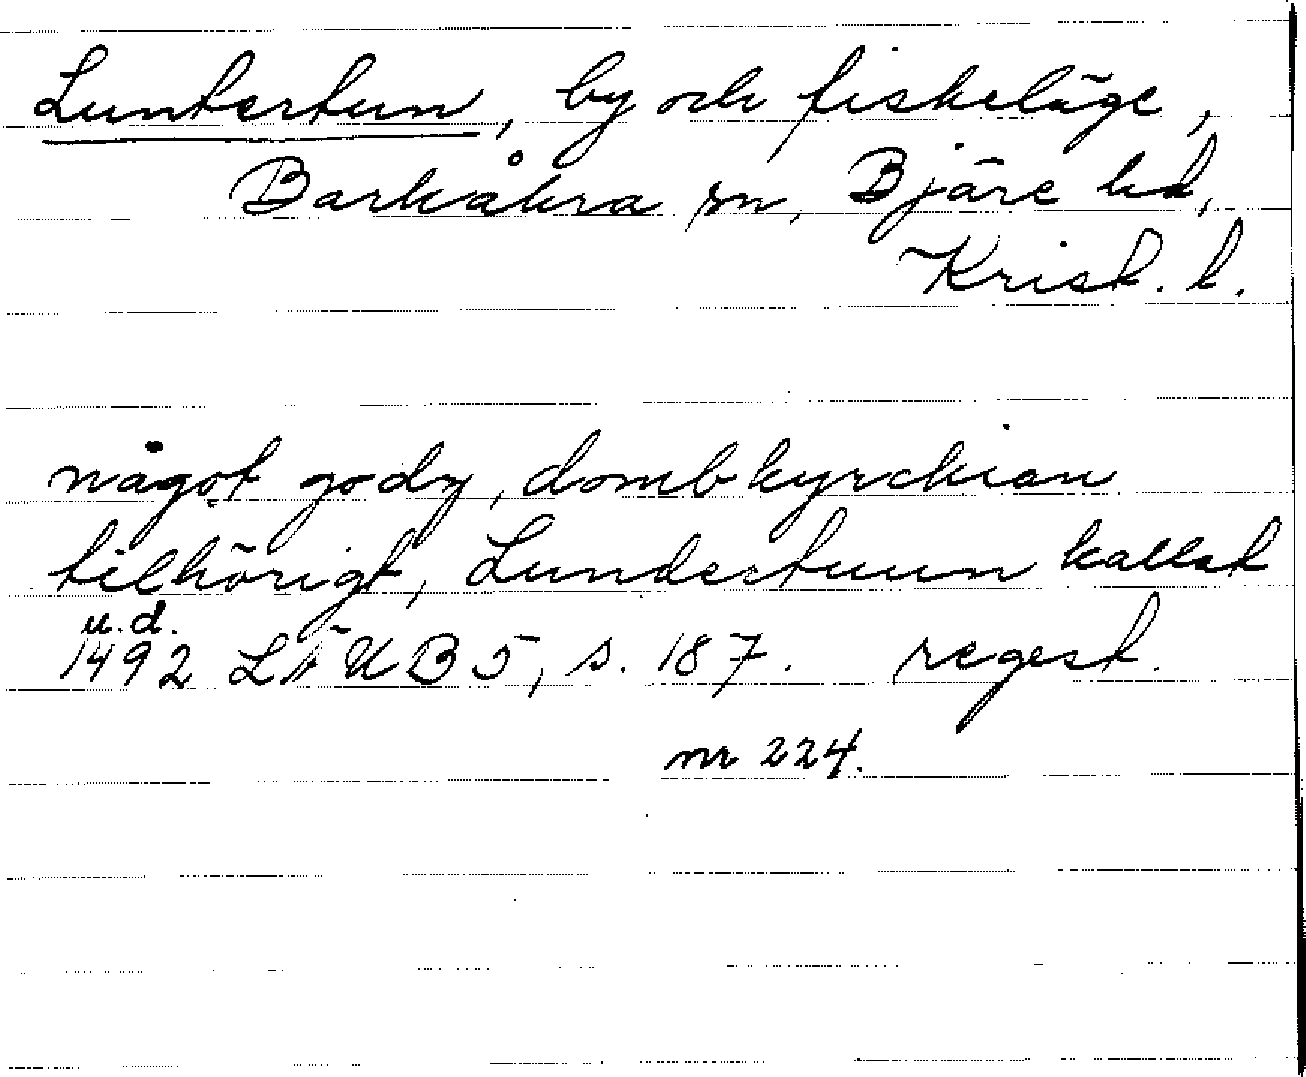 Luntertun, by och fiskeläge,
Barkåkra sn, Bjäre hd,
Krist. l.
något gody, dombkyrckian
tilhörigt, Lundertuun kallat
u.d.
1492 LÄUB 5, s. 187. regest.
nr 224.